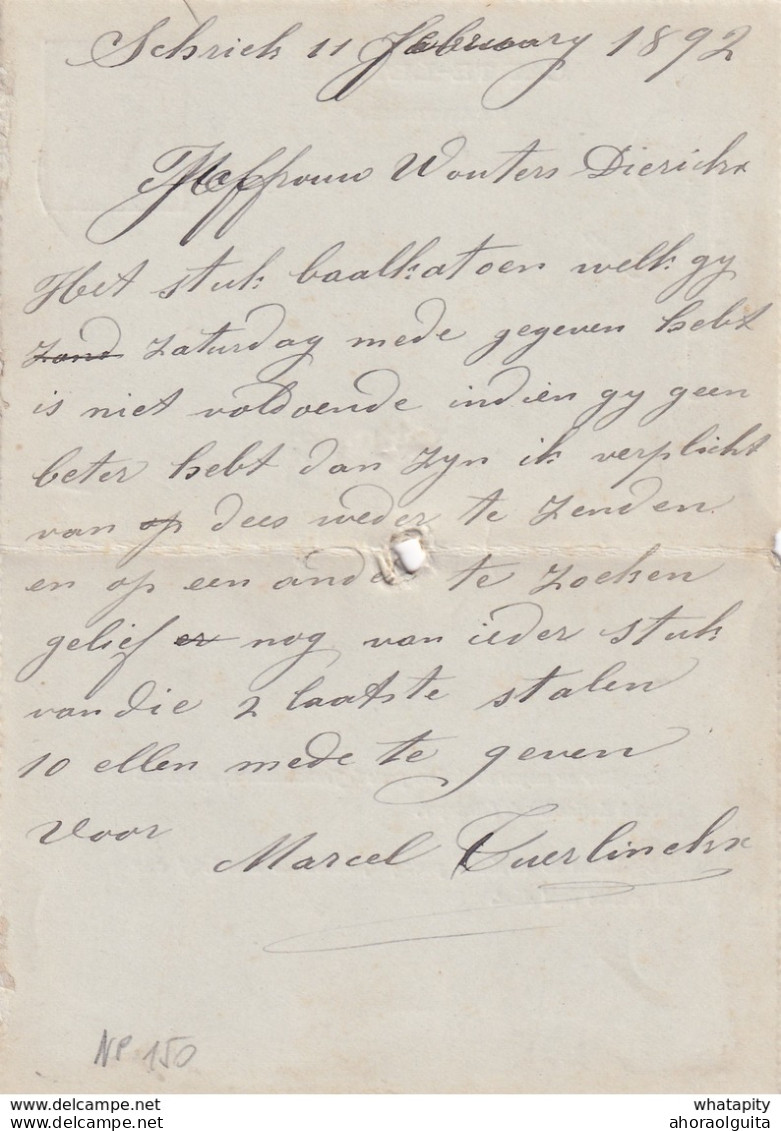 Schriek 11 February 1892
Meffrouw Wouters Dierickx
Het stuk baalkatoen welk gy
zand zaturdag mede gegeven hebt
is niet voldoende indien gy geen
beter hebt dan zyn ik verplicht
van op dees weder te zenden
en op een ander te zoeken
gelief er nog van ieder stuk
van die 2 laatste stalen
10 ellen mede te geven
Voor
Marcel Tuerlinckx
NP 150
whatapity
ahoraolguita